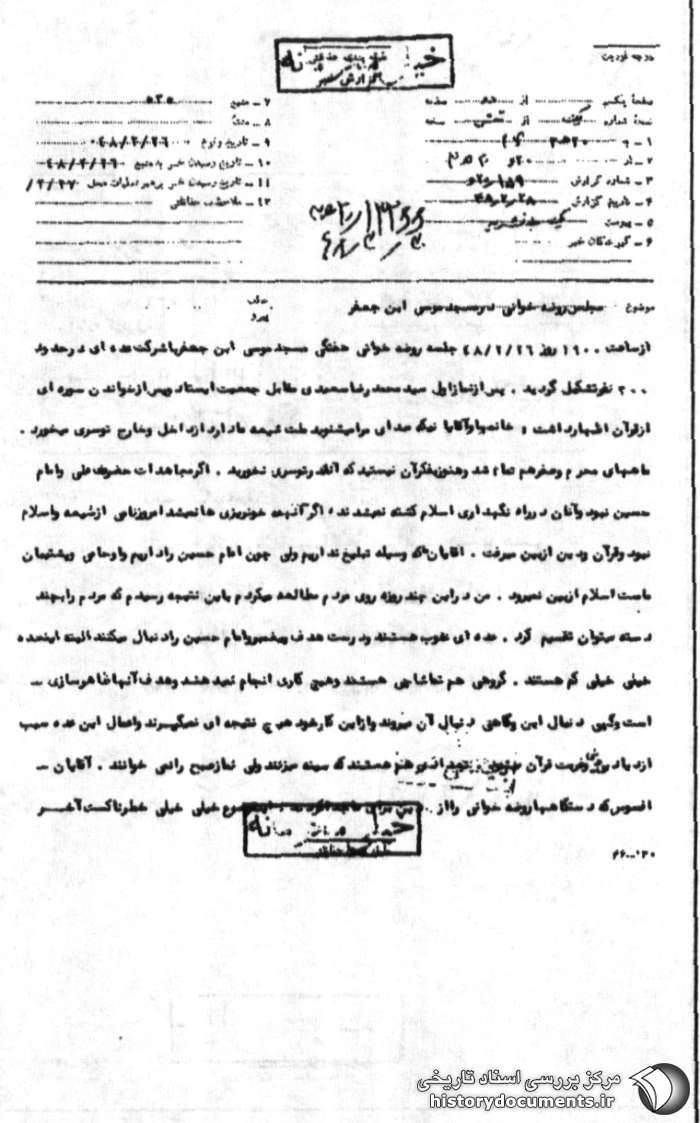 خیلی محرمانه
طبقه بندی حفاظتی
گزارش خبر
درجه فوریت
صفحه یکم از صفحه
نسخه شماره از نسخه
۱ - به
۲ - از ۲۰ ه ۳
۳ - شماره گزارش
۴ - تاریخ گزارش
۵ - پیوست
۶ - گیرندگان خبر
۷ - منبع ۵۲۵
۸ - منشاء
۹ - تاریخ وقوع ۴۸/۲/۲۶
۱۰ - تاریخ رسیدن خبر به منبع ۴۸/۲/۲۶
۱۱ - تاریخ رسیدن خبر برهبر عملیات محل ۲/۲۷/
۱۲ - ملاحظات حفاظتی
موضوع مجلس روضه خوانی در مسجد موسی ابن جعفر
عطف
پیرو
از ساعت ۱۹۰۰ روز ۴۸/۲/۲۶ جلسه روضه خوانی هفتگی مسجد موسی ابن جعفر با شرکت عده ای در حدود
۲۰۰ نفر تشکیل گردید . پس از نماز اول سید محمد رضا سعیدی مقابل جمعیت ایستاد و پس از خواندن سوره ای
از قرآن اظهار داشت خانمها و آقایانیکه صدای مرا میشنوید ملت شیعه ما دارد از داخل و خارج توسری میخورد .
ماههای محرم و صفر هم تمام شد و هنوز بفکر آن نیستید که آنقدر توسری نخورید . اگر مجاهدات حضرت علی و امام
حسین نبود و آنان در راه نگهداری اسلام کشته نمیشدند اگر آنهمه خونریزی ها نمیشد امروز نامی از شیعه و اسلام
نبود و قرآن و دین از بین میرفت . آقایان اگر وسیله تبلیغ نداریم ولی چون امام حسین را داریم و او حامی و پشتیبان
ماست اسلام از بین نمیرود . من در این چند روزه روی مردم مطالعه میکردم باین نتیجه رسیدم که مردم را بچند
دسته میتوان تقسیم کرد . عده ای خوب هستند و درست هدف پیغمبر و امام حسین را دنبال میکنند البته اینعده
خیلی خیلی کم هستند . گروهی هم تماشاچی هستند و هیچ کاری انجام نمیدهند و هدف آنها ظاهرسازی -
است و گهی دنبال این و گاهی دنبال آن میروند و از این کار خود هیچ نتیجه ای نمیگیرند و اعمال این عده سبب
هستند که سینه میزنند ولی نماز صبح را نمی خوانند . آقایان -
افسوس که دستگاهها روضه خوانی را از خیلی خیلی خطرناکست آخر
خیلی محرمانه
مرکز بررسی اسناد تاریخی
historydocuments.ir